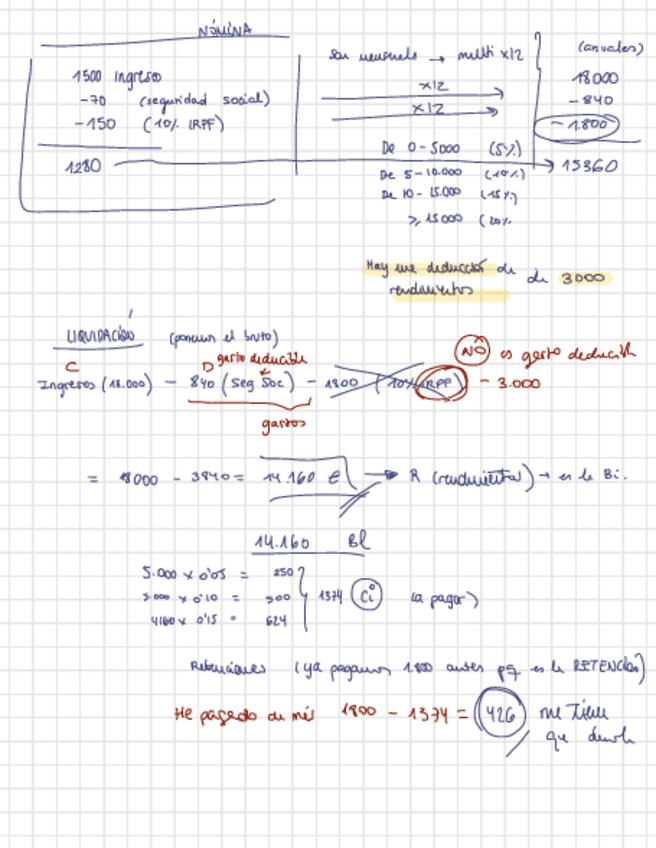 NÓMINA
1500 ingreso
-70 (seguridad social)
-150 (10% IRPF)
1280
son mensuales → multi x12
x12
x12
De 0 - 5000 (5%)
De 5 - 10.000 (10%)
De 10 - 15.000 (15%)
≥ 15000 (20%
(anuales)
18000
-840
-1.800
15360
Hay una deducción de de 3000
rendimientos
LIQUIDACIÓN (ponemos el bruto)
C D gasto deducible NO es gasto deducible
Ingresos (18.000) - 840 (Seg Soc) - 1800 (10% IRPF) - 3.000
gastos
= 18000 - 3840 = 14.160 € → R (rendimientos) → es la Bi.
14.160 Bl
5.000 x 0'05 = 250
5.000 x 0'10 = 500 1374 Ci (a pagar)
4160 x 0'15 = 624
Retenciones (ya pagamos 1.800 antes pq es la RETENCIÓN)
He pagado de más 1800 - 1374 = 426 me tiene
que